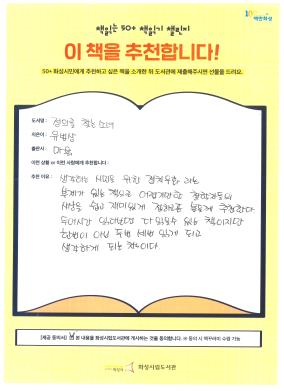 책읽는 50+ 책읽기 챌린지
이 책을 추천합니다!
50+ 화성시민에게 추천하고 싶은 책을 소개한 뒤 도서관에 제출해주시면 선물을 드려요.
도서명 : 정의를 찾는 소녀
지은이 : 유범상
출판사 : 마북
이런 상황 or 이런 사람에게 추천합니다 :
추천 이유 : 생각하는 시민을 위한 정치우화 라는
부제가 있는 책으로 어렵게만한 철학자들의
사상을 쉽고 재미있게 정치로 풀도록 추정한다
두어시간 읽다보면 다 읽을수 있는 책이지만
한번이 아닌 두번 세번 읽게 되고
생각하게 되는 책이다
[제공 동의서] 본 내용을 화성시립도서관에 게시하는 것을 동의합니다.
화성시립도서관